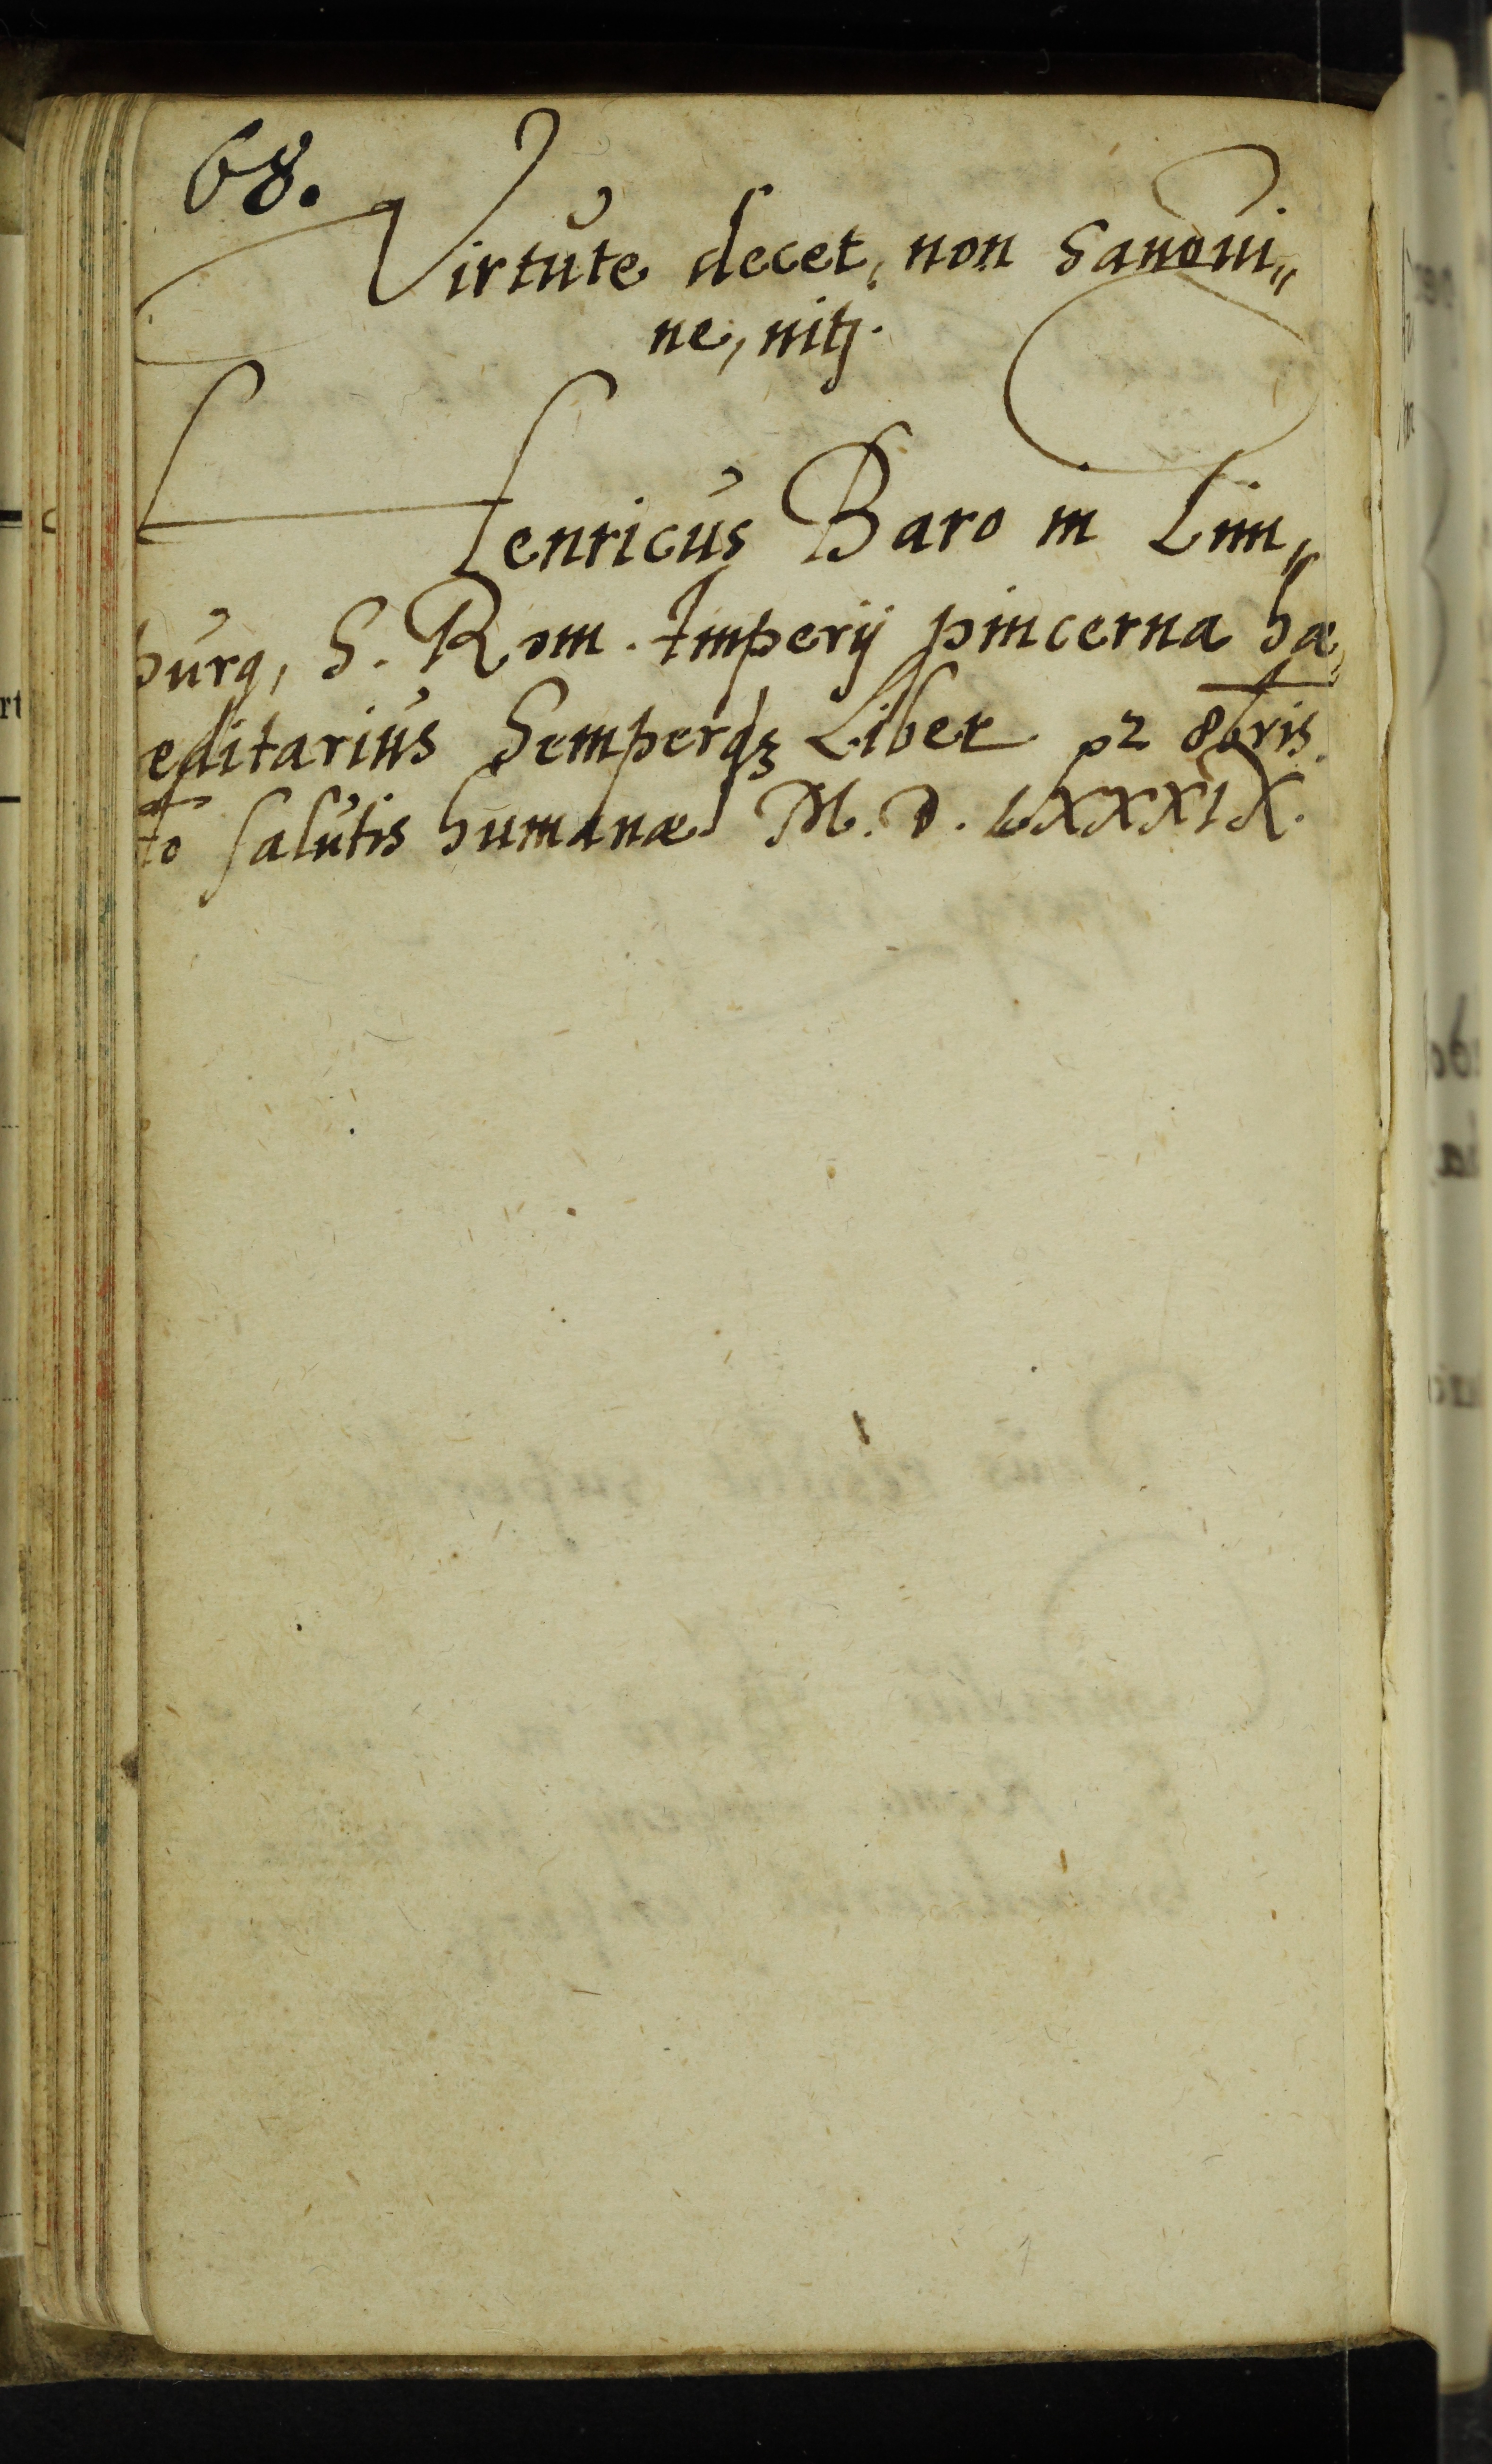 68.
Virtute decet, non Sangui„
ne, nitj.
Henricus Baro in Lim„
purg, S. Rom. Imperij pincerna hæ„
editarius Semperqz Liber 12 8bris.
to salutis humanæ M. D. LXXXIX.